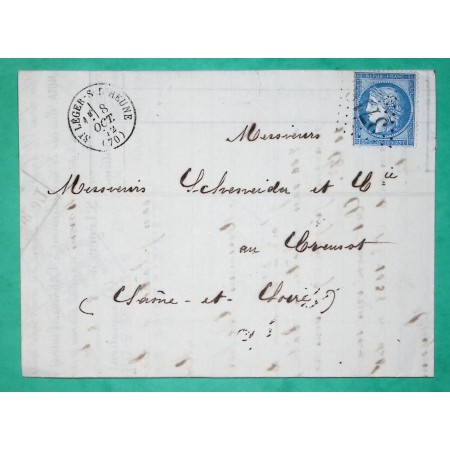 ST LEGER-S-DHEUNE
8
OCT.
72
(70)
REPUB. FRANC.
Messieurs
Messieurs Schneider et Cie
au Creusot
(Saône-et-Loire)